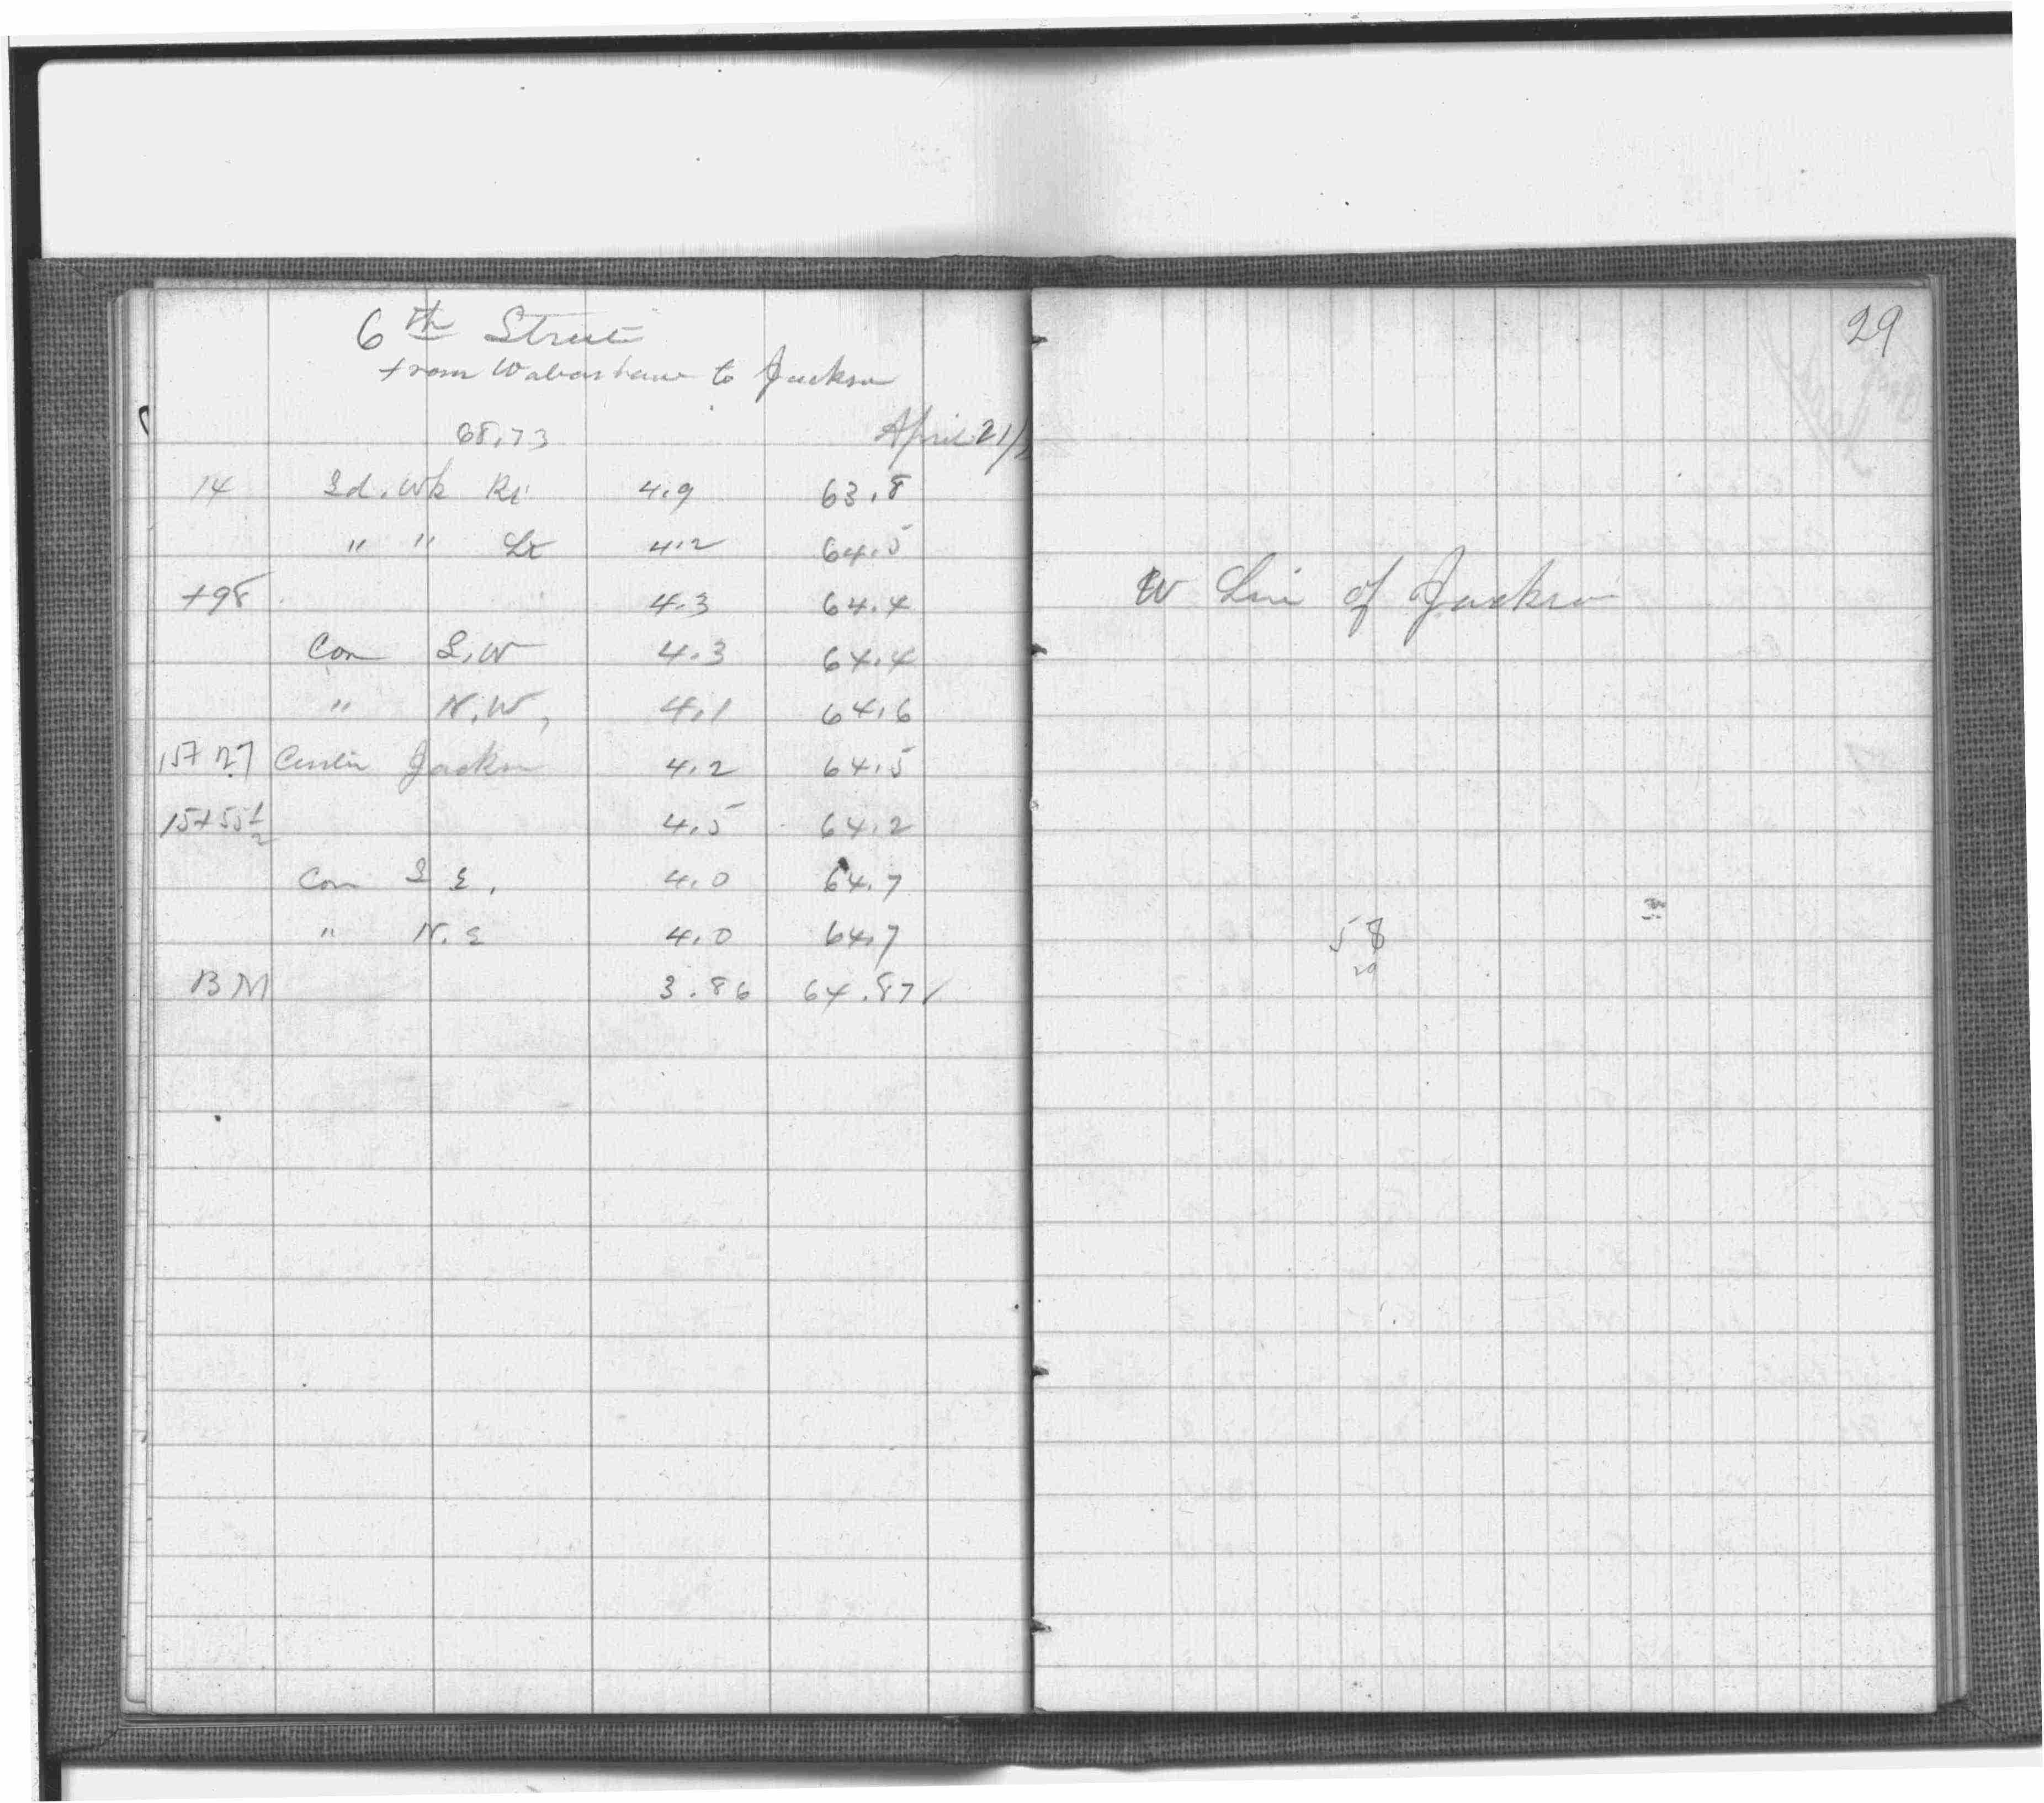 6th Street
from Wabashaw to Jackson
68.73 April 21/
14 Sd. Wk Rt 4.9 63.8
" " Lt 4.2 64.5
+98 4.3 64.4
Cor S.W 4.3 64.4
" N.W, 4.1 64.6
15+27 Center Jackson 4.2 64.5
15+55 1/2 4.5 64.2
Cor S E. 4.0 64.7
" N.E 4.0 64.7
BM 3.86 64.87
29
W Line of Jackson
58
29